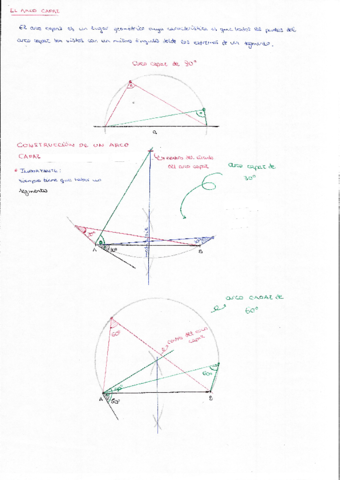 EL ARCO CAPAZ
El arco capaz es un lugar geométrico cuya característica es que todos los puntos del
arco capaz son vistos con un mismo ángulo desde los extremos de un segmento.
Arco capaz de 90°
CONSTRUCCIÓN DE UN ARCO
CAPAZ
centro del
del arco capaz
arco capaz de
30°
siempre tiene que haber un
segmento
A
B
30°
arco capaz de
60°
centro del arco
capaz
60°
60°
A
60°
B